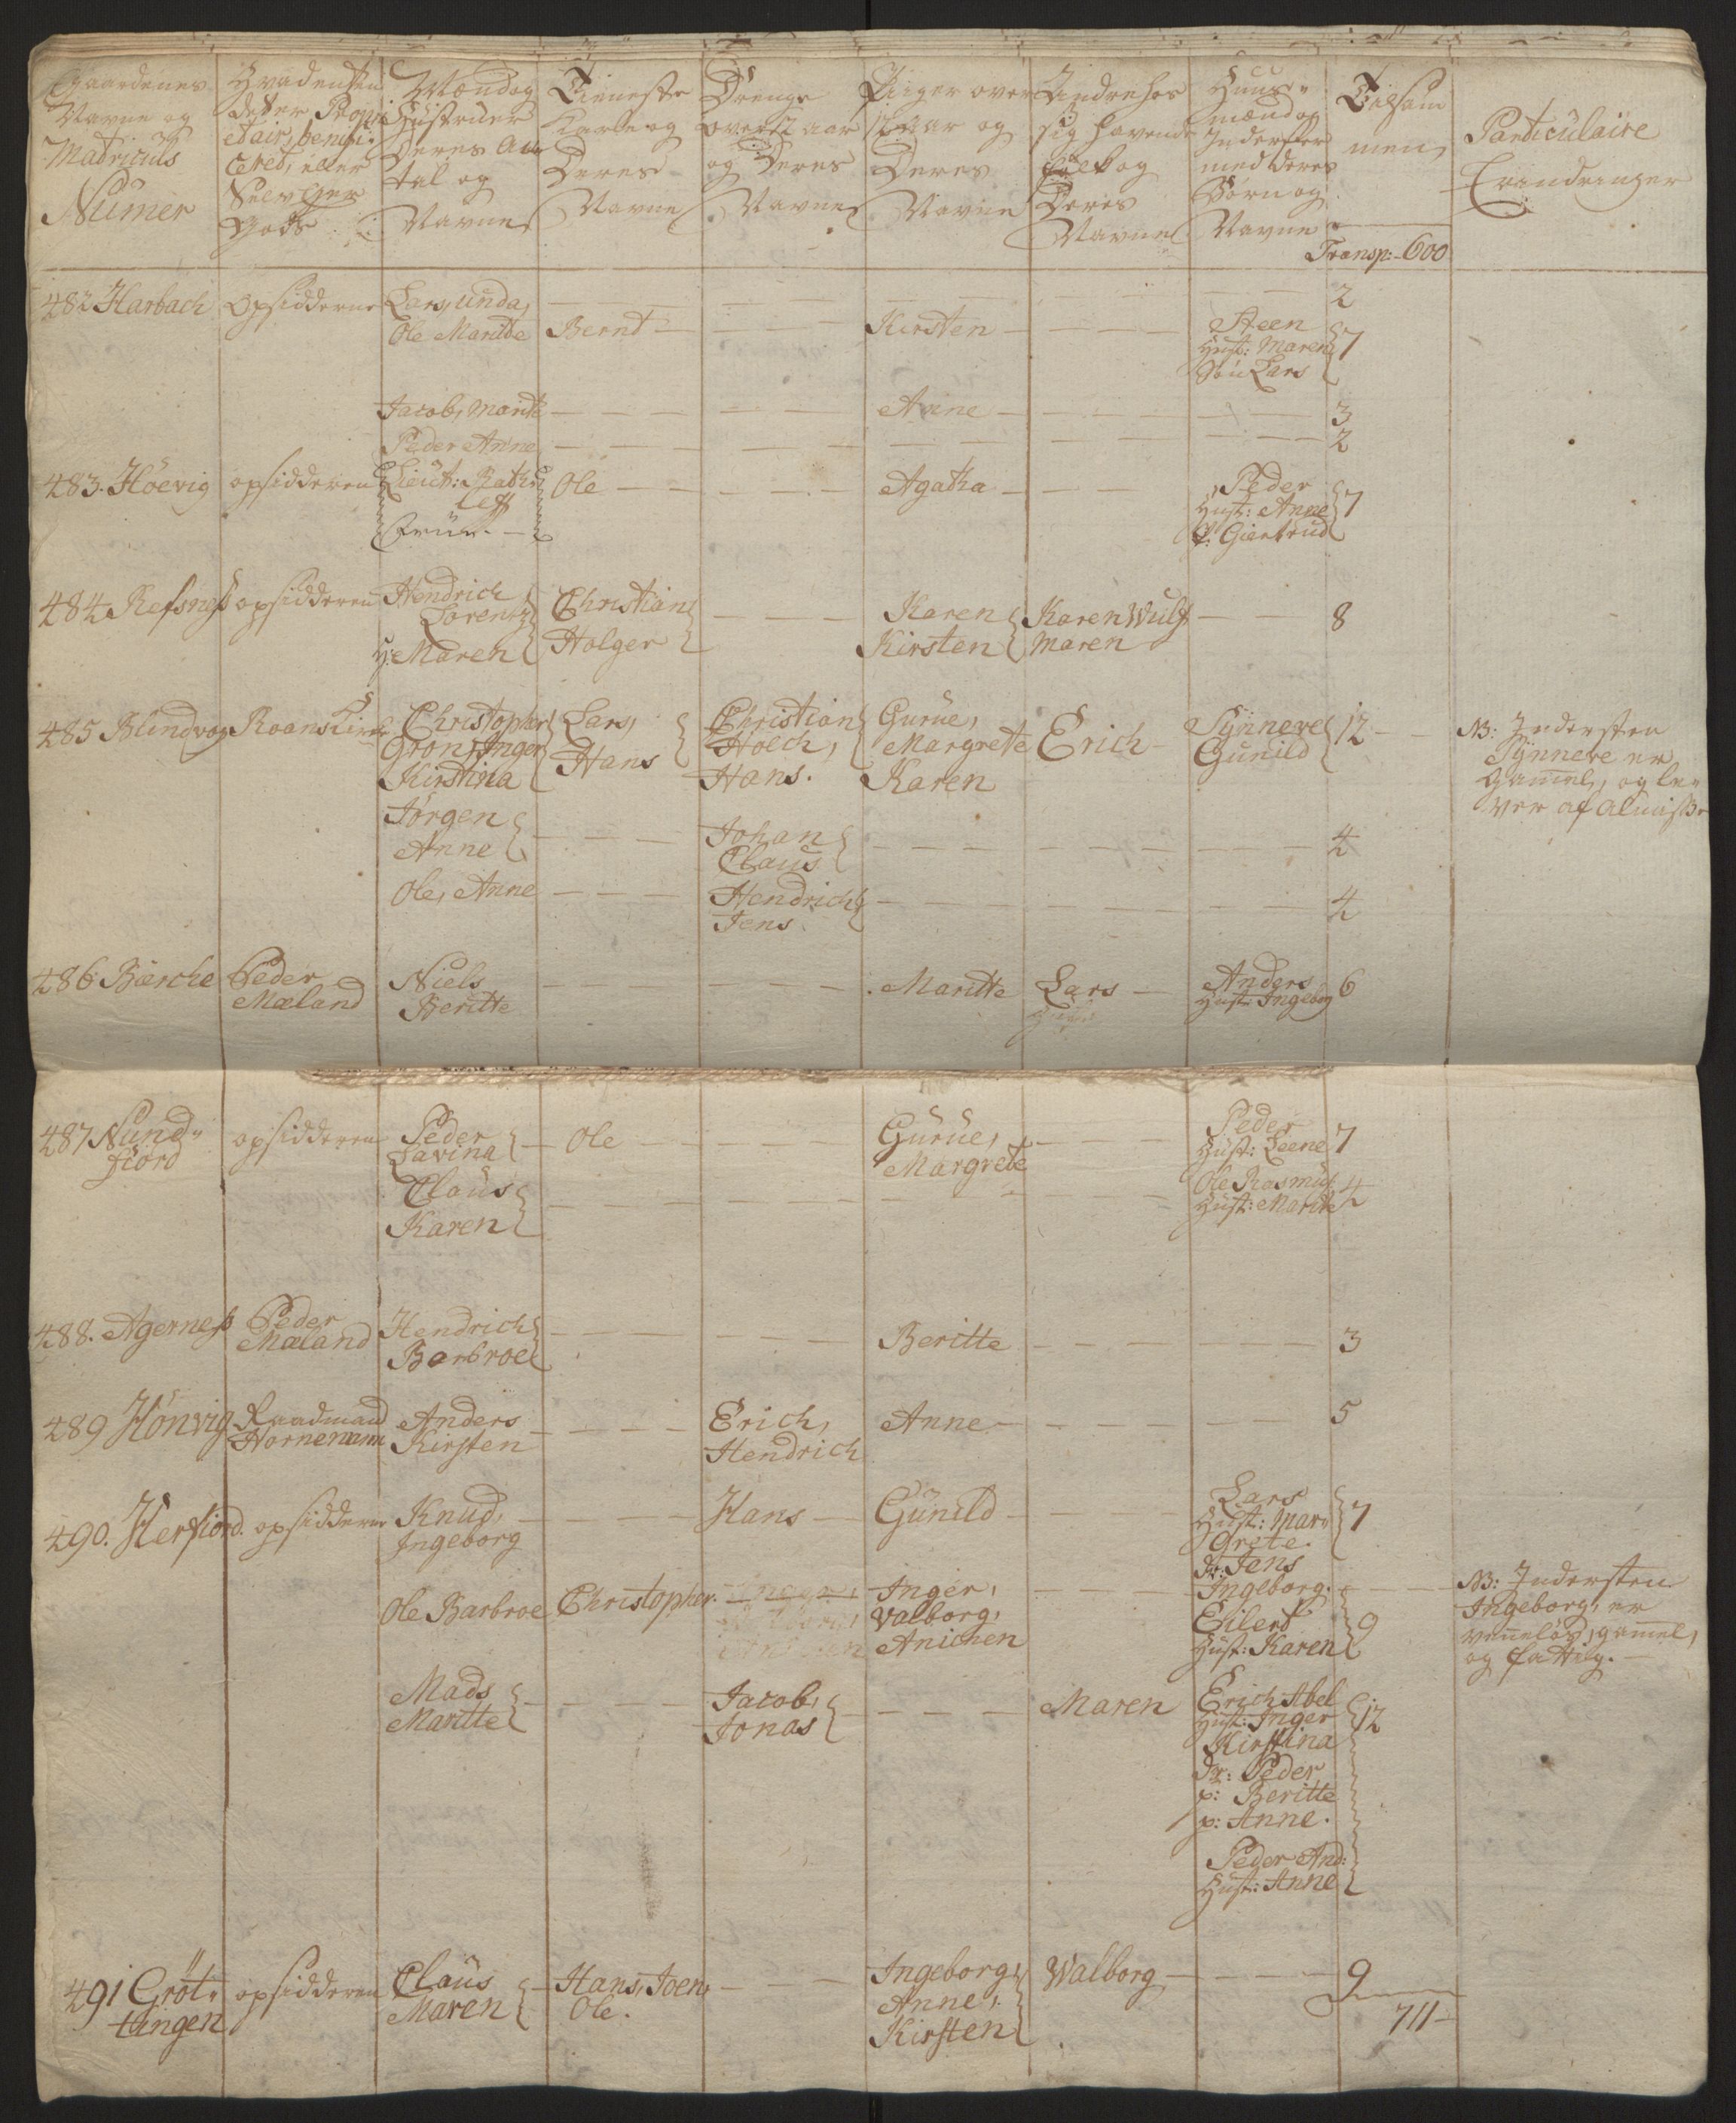 Gaardenes
Navne og
Matriculs
Numer
Hvad enten
det er Propri
etair, benifi-
ceret, eller
Selv Eyer
Gods
Mænd og
Hustruer
Deres An
tal og
Navne
Tieneste
Karle og
Deres
Navne
Drenge
over 12 aar
og Deres
Navne
Piiger over
12 aar og
Deres
Navne
Andre hos
sig havende
folk og
Deres
Navne
Huus-
mænd og
Inderster
med deres
Børn og
Navne
Tilsam
men
Transp: 600
Particulaire
Erindringer
482 Harbach opsidderne Lars, Unda, 2
Ole Maritte Bernt Kirsten Steen
Hust: Maren
Søn Lars 7
Jacob, Marite Anne 3
Peder Anne 2
483. Höevig opsidderen Lieut: Rathc
leff
Frue Ole Agatha Peder
Hust: Anne
P: Giertrud 7
484 Refsneß opsidderen Hendrich
Lorentz
H: Maren Christian
Holger Karen
Kirsten Karen Wulf
Maren 8
485 Blindvog Roans Kirch Christopher
Grön, Inger
Kirstina Lars,
Hans Christian
Holch,
Hans. Gurue,
Margrete
Karen Erich Synneve
Gunild 12 NB: Indersten
Synneve er
Gammel, og le-
ver af Almisse
Jörgen
Anne Johan
Claus 4
Ole, Anne Hendrich
Jens 4
486 Bærche Peder
Mæland Niels
Beritte Maritte Lars Anders
Hust: Ingebog 6
487 Nund-
fiord opsidderen Peder
Lavina Ole Gurue,
Margrete Peder
Hust: Leene 7
Claus
Karen Ole Rasmus
Hust: Marite 4
488. Agerneß Peder
Mæland Hendrich
Barbroe Beritte 3
489 Hönvig Raadmand
Hornemann Anders
Kirsten Erich,
Hendrich Anne 5
490. Herfiord. opsidderne Knud,
Ingeborg Hans Gunild Lars
Hust: Mar-
Grete.
Dr: Jens 7
Ole Barbroe Christopher. Inger,
Valborg,
Anichen Ingeborg.
Eilert
Hust: Karen 9 NB: Indersten
Ingeborg, er
venneløs, gamel,
og fattig.
Mads
Maritte Jacob,
Jonas Maren Erich Abel
Hust: Inger
Kirstina
Dr: Peder
p: Beritte
p: Anne.
Peder And:
Hust: Anne 12
491 Gröt-
tingen opsidderen Claus
Maren Hans, Joen,
Ole. Ingeborg
Anne,
Kirsten Walborg 9
711